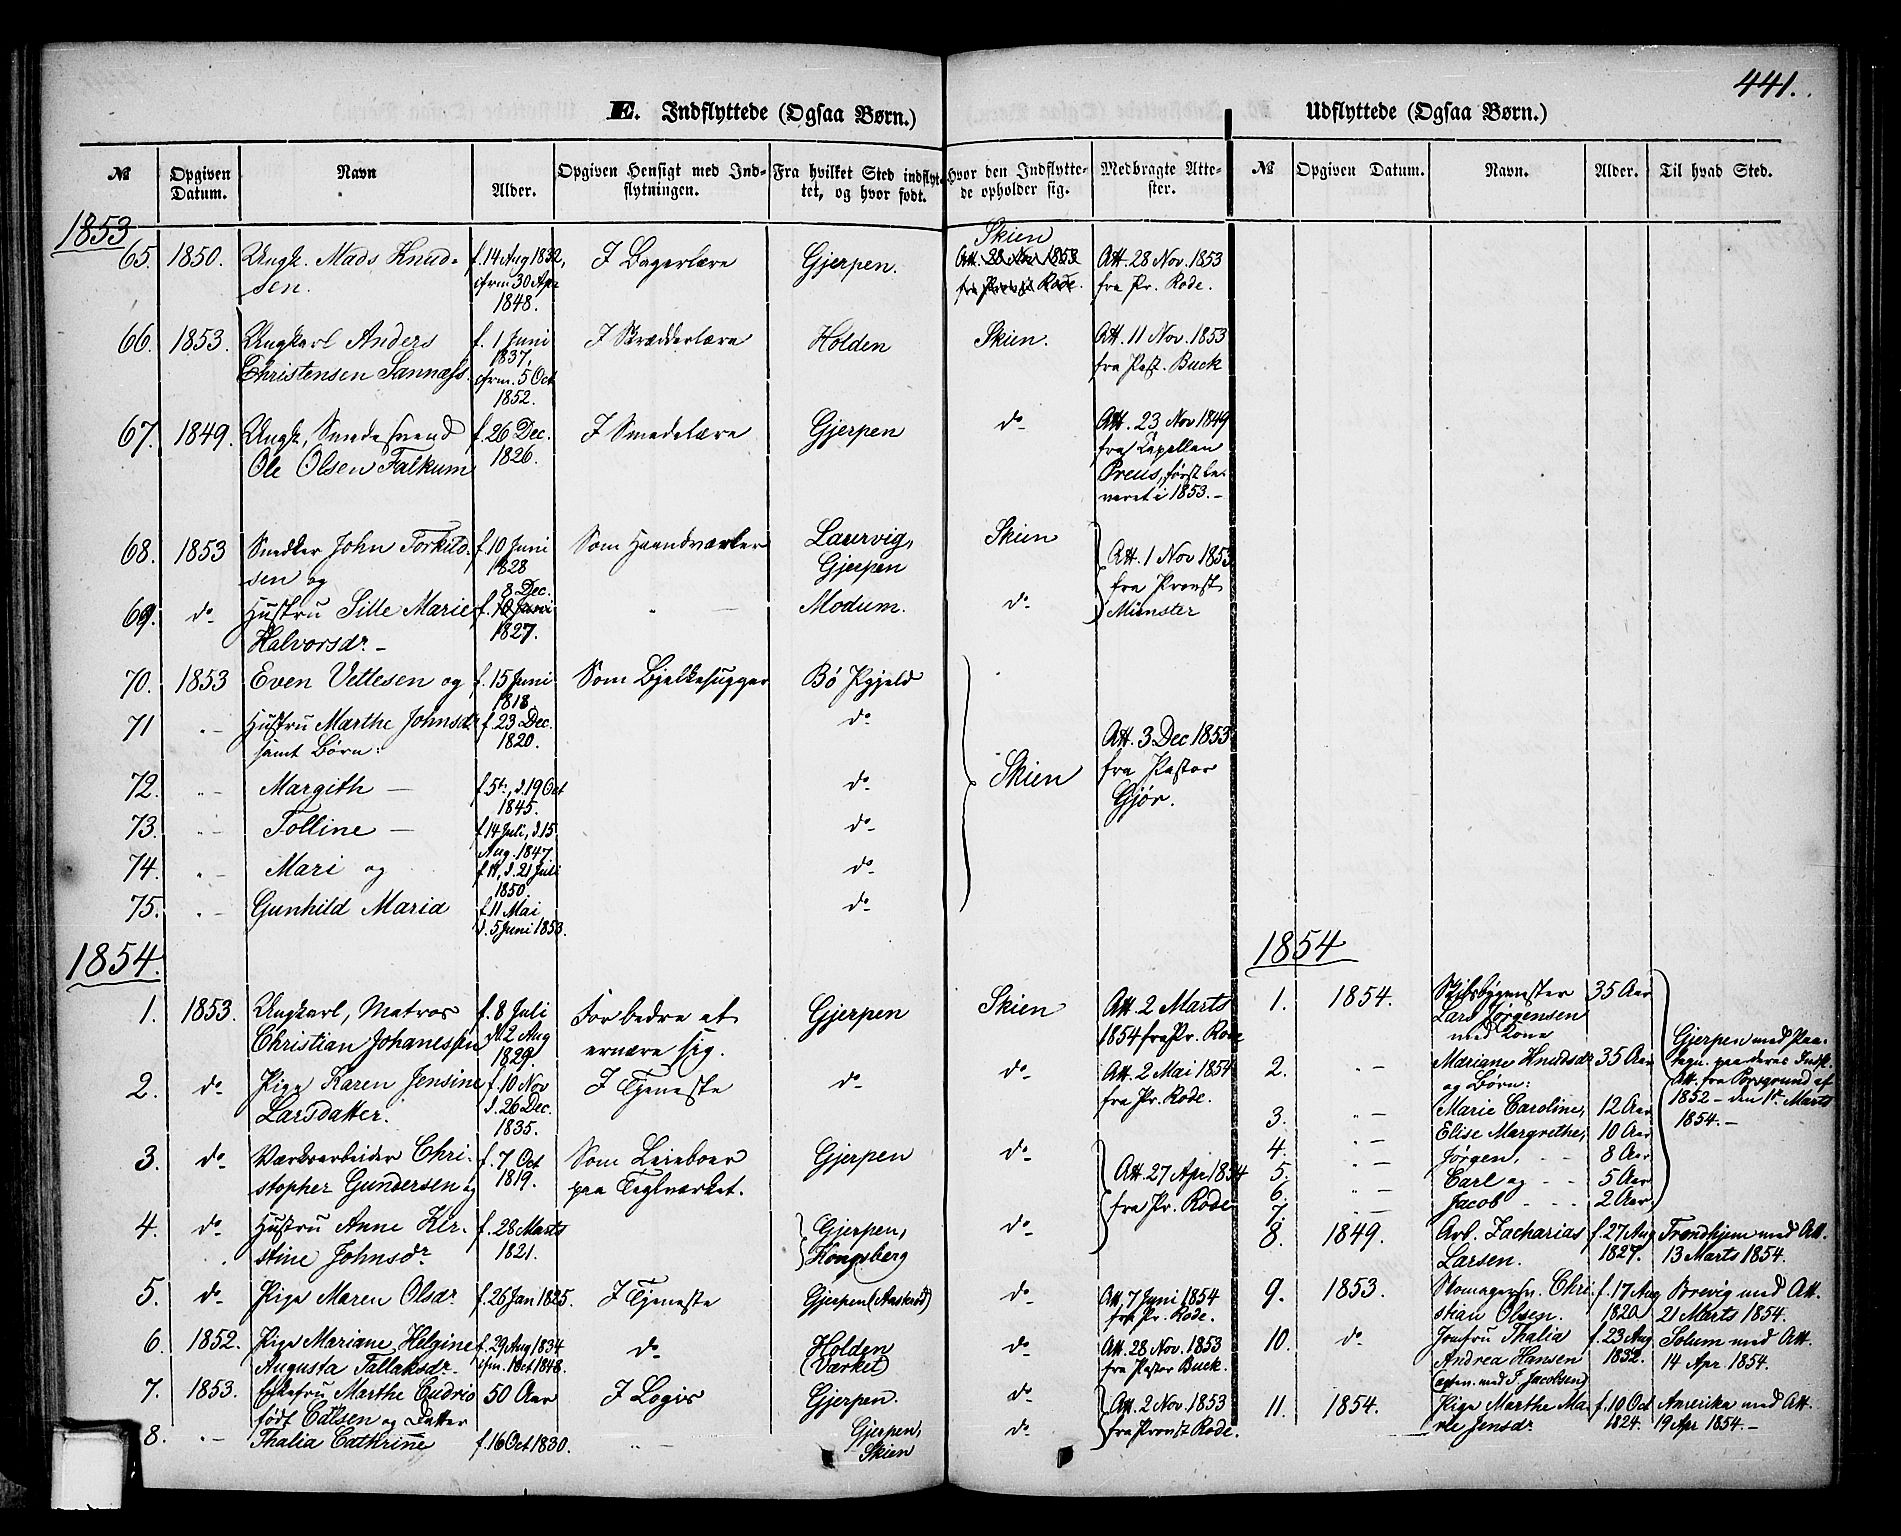 441.
E. Indflyttede (Ogsaa Børn.)
Udflyttede (Ogsaa Børn.)
№ Opgiven Datum. Navn Alder. Opgiven Hensigt med Indflytningen. Fra hvilket Sted indflyttet, og hvor født. Hvor den Indflyttede opholder sig. Medbragte Attester.
№ Opgiven Datum. Navn. Alder. Til hvad Sted.
1853
65. 1850. Ungk. Mads Knud- f. 14 Aug 1832, I Bagerlære Gjerpen. Skien Att. 28 Nov. 1853
sen. cfrm 30 Apr 1848. Att. 28 Nov 1853 fra Provst Rode. fra Pr. Rode.
66. 1853. Ungkarl Anders f. 1 Juni 1837, I Skrædderlære Holden Skien. Att. 11 Nov. 1853
Christensen Sannæss. cfrm. 5 Oct 1852. fra Past. Buck
67. 1849. Ungk, Smedesvend f. 26 Dec. 1826. I Smedelære Gjerpen do Att. 23 Nov 1849
Ole Olsen Falkum fra Capellan
Preus, først le-
veret i 1853. -
68. 1853 Snedker John Torkild- f. 10 Juni 1828 Som Haandværker Laurvig, Gjerpen Skien Att. 1 Nov 1853
sen og fra Provst
69. do Hustru Sille Marie f. 10 Juni 8 Dec. 1827. " - Modum. do Münster
Halvorsdr. -
70. 1853 Even Vettesen og f. 15 Juni 1818 Som Bjelkehugger Bö Pgjeld
71 " - Hustru Marthe Johnsdr f. 23 Dec. 1820. do Att. 3 Dec 1853
samt Børn: fra Pastor
72. " - Margith - f. 5te, d. 19 Oct 1845. do Skien Gjör.
73. " - Tolline - f 14 Juli, d. 15 Aug. 1847 do
74. " - Mari og f 11, d. 21 Juli 1850. do
75. " - Gunhild Maria f 11 Mai d. 5 Juni 1853. do
1854.
1. 1853. Ungkarl, Matros f. 8 Juli For bedre at Gjerpen Skien Att. 2 Marts
Christian Johanessen d. 2 Aug 1829 ernære sig. 1854 fra Pr. Rode
2. do Pige Karen Jensine f. 10 Nov I Tjeneste do do Att. 2 Mai 1854
Larsdatter. d. 26 Dec. 1835. fra Pr. Rode.
3. do Værksarbeider Chri- f. 7 Oct 1819. Som Leieboer Gjerpen do Att. 27 Apr 1854
stopher Gundersen og paa Teglværket. fra Pr. Rode
4. do Hustru Anne Kir- f. 28 Marts 1821. Gjerpen, do
stine Johnsdr Kongsberg
5. do Pige Maren Olsdr. f. 26 Jan 1825. I Tjeneste Gjerpen (Aaskod) do Att, 7 Juni 1854
fra Pr. Rode.
6. 1852. Pige Mariane Helgine f. 29 Aug 1834 do Holden do Att. 28 Nov. 1853
Augusta Tallaksdr. cfrm. 1 Oct 1848. (Værket) fra Pastor Buck.
7. 1853. Enkefru Marthe Cudrio 50 Aar I Logis Gjerpen. do Att. 2 Nov. 1853
født Carlsen og Datter fra Provst Rode.
8. " - Thalia Cathrine f. 16 Oct 1830. " - Gjerpen, Skien do
1854
1. 1854. Skibsbygmester 35 Aar
Lars Jørgensen
med Kone
2. " - Mariane Knudsdr 35 Aar
og Børn:
3. " - Marie Caroline, 12 Aar
4. " - Elise Margrethe, 10 Aar
5. " - Jørgen, - - 8 Aar
6. " - Carl og - - 5 Aar
7. " - Jacob - - - 2 Aar
Gjerpen med Paa-
tegn. paa deres Indfl.
Att. fra Porsgrund af
1852 - den 1te Marts
1854. -
8. 1849. Arb. Zacharias f. 27 Aug Trondhjem med Att.
Larsen. 1827. 13 Marts 1854.
9. 1853. Skomagersv. Chri- f. 17 Aug Brevig med Att.
stian Olsen. 1820. 21 Marts 1854.
10. do Jomfru Thalia f. 23 Aug Solum med Att.
Andrea Hansen 1832. 14 Apr. 1854.
(egten. med T. Jacobsen)
11. 1854. Pige Marthe Ma- f. 10 Oct Amerika med Att.
rie Jensdr. 1824. 19 Apr 1854. -